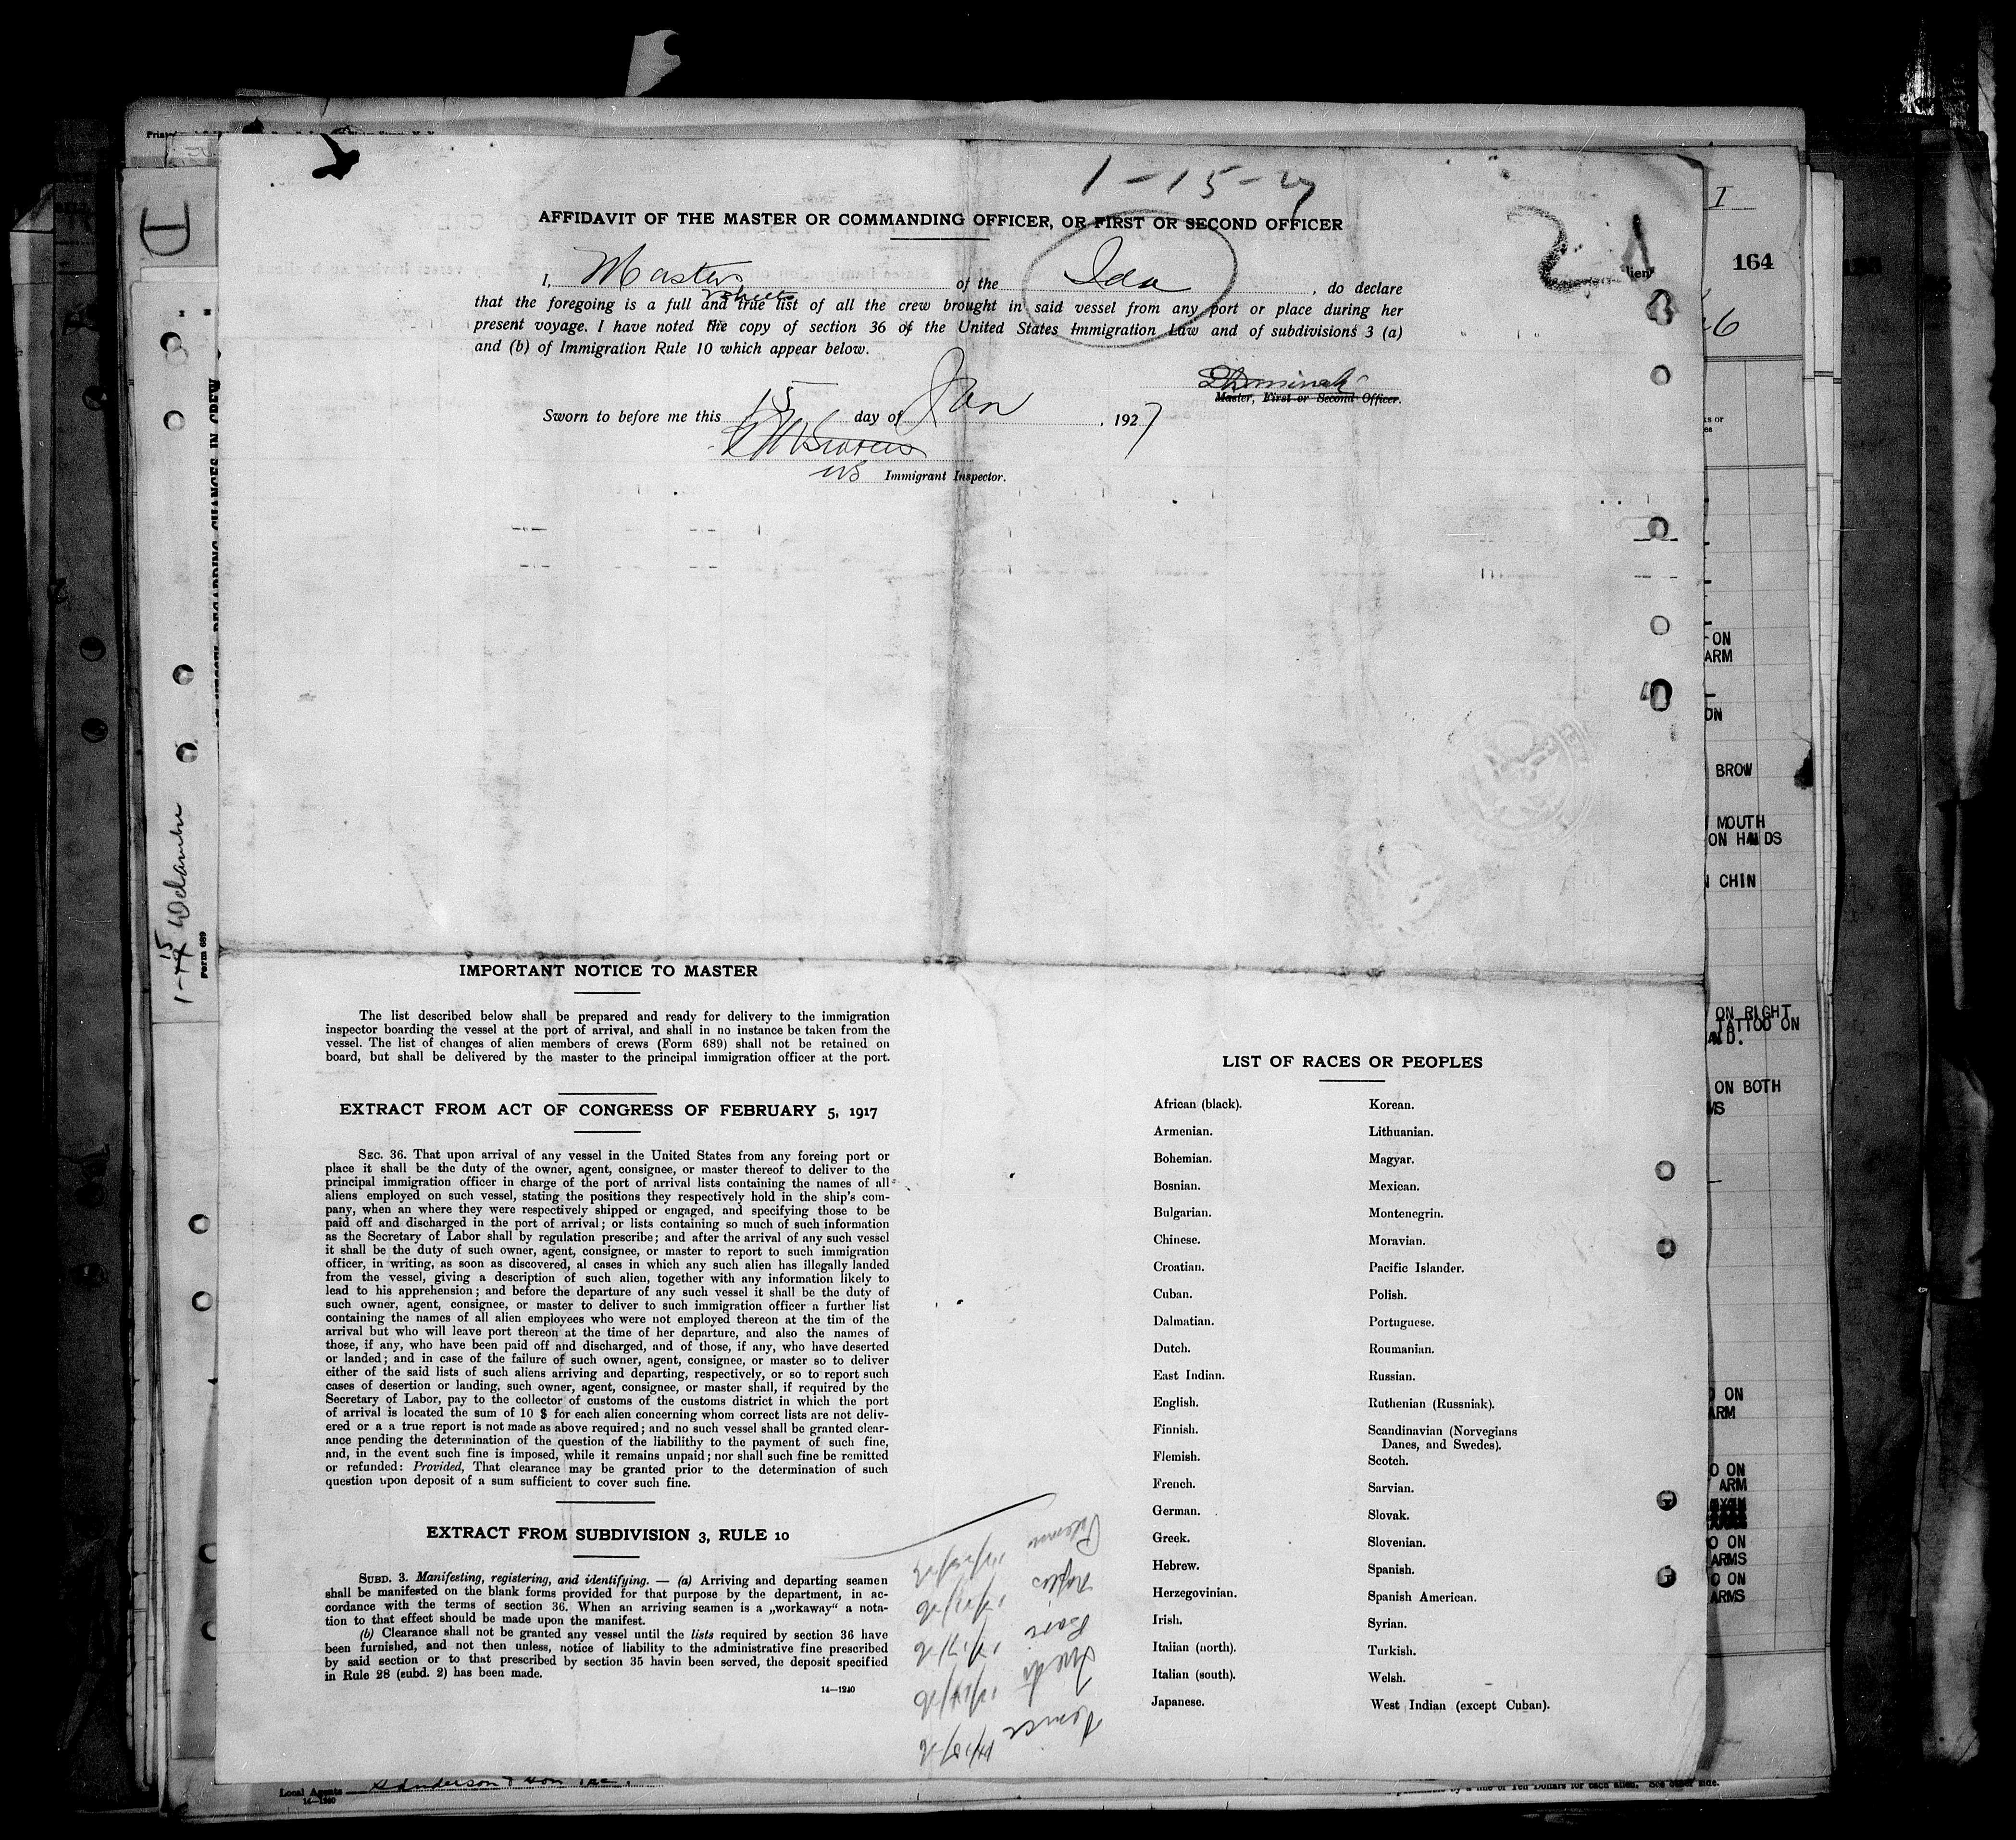 1-15-27
AFFIDAVIT OF THE MASTER OR COMMANDING OFFICER, OR FIRST OR SECOND OFFICER
I, Master of the Ida, do declare
that the foregoing is a full and true list of all the crew brought in said vessel from any port or place during her
present voyage. I have noted the copy of section 36 of the United States Immigration Law and of subdivisions 3 (a)
and (b) of Immigration Rule 10 which appear below.
Master, First or Second Officer.
Sworn to before me this 15 day of Jan, 1927
Immigrant Inspector.
164
IMPORTANT NOTICE TO MASTER
The list described below shall be prepared and ready for delivery to the immigration
inspector boarding the vessel at the port of arrival, and shall in no instance be taken from the
vessel. The list of changes of alien members of crews (Form 689) shall not be retained on
board, but shall be delivered by the master to the principal immigration officer at the port.
EXTRACT FROM ACT OF CONGRESS OF FEBRUARY 5, 1917
SEC. 36. That upon arrival of any vessel in the United States from any foreing port or
place it shall be the duty of the owner, agent, consignee, or master thereof to deliver to the
principal immigration officer in charge of the port of arrival lists containing the names of all
aliens employed on such vessel, stating the positions they respectively hold in the ship's com-
pany, when an where they were respectively shipped or engaged, and specifying those to be
paid off and discharged in the port of arrival; or lists containing so much of such information
as the Secretary of Labor shall by regulation prescribe; and after the arrival of any such vessel
it shall be the duty of such owner, agent, consignee, or master to report to such immigration
officer, in writing, as soon as discovered, al cases in which any such alien has illegally landed
from the vessel, giving a description of such alien, together with any information likely to
lead to his apprehension; and before the departure of any such vessel it shall be the duty of
such owner, agent, consignee, or master to deliver to such immigration officer a further list
containing the names of all alien employees who were not employed thereon at the tim of the
arrival but who will leave port thereon at the time of her departure, and also the names of
those, if any, who have been paid off and discharged, and of those, if any, who have deserted
or landed; and in case of the failure of such owner, agent, consignee, or master so to deliver
either of the said lists of such aliens arriving and departing, respectively, or so to report such
cases of desertion or landing, such owner, agent, consignee, or master shall, if required by the
Secretary of Labor, pay to the collector of customs of the customs district in which the port
of arrival is located the sum of 10 $ for each alien concerning whom correct lists are not deliv-
ered or a a true report is not made as above required; and no such vessel shall be granted clear-
ance pending the determination of the question of the liabilithy to the payment of such fine,
and, in the event such fine is imposed, while it remains unpaid; nor shall such fine be remitted
or refunded: Provided, That clearance may be granted prior to the determination of such
question upon deposit of a sum sufficient to cover such fine.
EXTRACT FROM SUBDIVISION 3, RULE 10
SUBD. 3. Manifesting, registering, and identifying. — (a) Arriving and departing seamen
shall be manifested on the blank forms provided for that purpose by the department, in ac-
cordance with the terms of section 36. When an arriving seamen is a „workaway“ a nota-
tion to that effect should be made upon the manifest.
(b) Clearance shall not be granted any vessel until the lists required by section 36 have
been furnished, and not then unless, notice of liability to the administrative fine prescribed
by said section or to that prescribed by section 35 havin been served, the deposit specified
in Rule 28 (subd. 2) has been made.
14—1240
LIST OF RACES OR PEOPLES
African (black).
Armenian.
Bohemian.
Bosnian.
Bulgarian.
Chinese.
Croatian.
Cuban.
Dalmatian.
Dutch.
East Indian.
English.
Finnish.
Flemish.
French.
German.
Greek.
Hebrew.
Herzegovinian.
Irish.
Italian (north).
Italian (south).
Japanese.
Korean.
Lithuanian.
Magyar.
Mexican.
Montenegrin.
Moravian.
Pacific Islander.
Polish.
Portuguese.
Roumanian.
Russian.
Ruthenian (Russniak).
Scandinavian (Norvegians
Danes, and Swedes).
Scotch.
Sarvian.
Slovak.
Slovenian.
Spanish.
Spanish American.
Syrian.
Turkish.
Welsh.
West Indian (except Cuban).
ON
ARM
ON
BROW
MOUTH
ON HANDS
CHIN
ON RIGHT
TATTOO ON
ON BOTH
ON
ARM
O ON
ARM
O ON
ARMS
O ON
ARMS
Form 689
Local Agents
14—1240
by a fine of Ten Dollars for each alien. See other side.